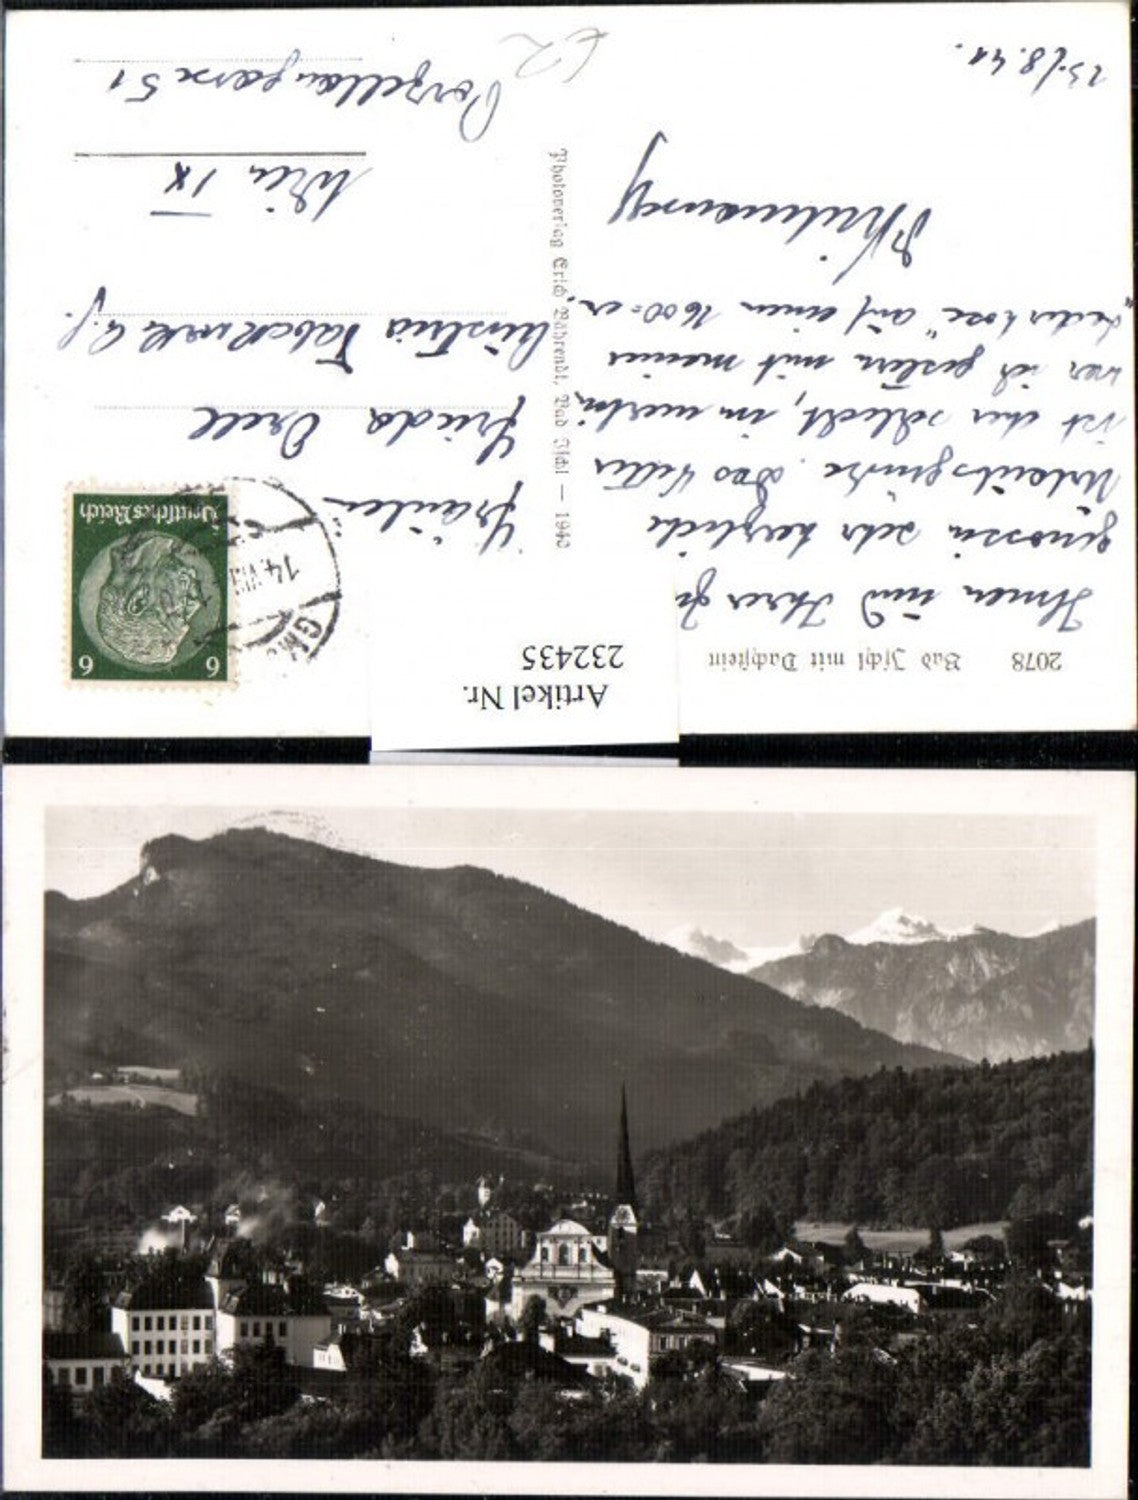 2078 Bad Ischl mit Dachstein
Artikel Nr.
232435
Ihnen und Ihrer
genossin sehr herzliche
Urlaubsgrüße. Das Wetter
ist eher schlecht, im
war ich gestern mit meiner
„Lederhose" auf einen 1600-er.
23./8.41.
Photoverlag Erich Bährendt, Bad Ischl — 1940
Deutsches Reich
6 6
14.VIII
GM
Fräulein
Frieda
Austria Tabakwerke A.G.
Wien IX
Porzellangasse 51